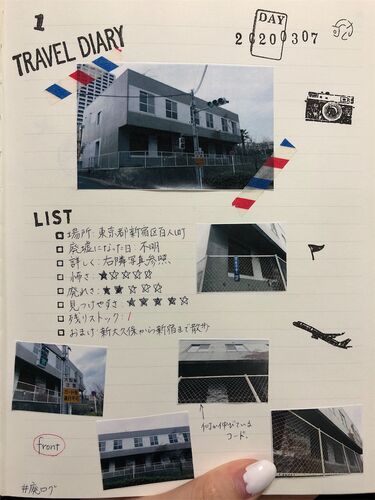 1
TRAVEL DIARY
DAY
20200307
LIST
場所：東京都新宿区百人町
廃墟になった日：不明
詳しく：右隣写真参照
怖さ：★☆☆☆☆
廃れさ：★★☆☆☆
見つけやすさ：★★★★★
残りストック：1
おまけ 新大久保から新宿まで散歩
↑
何か伸びている
コード。
front
#廃ログ